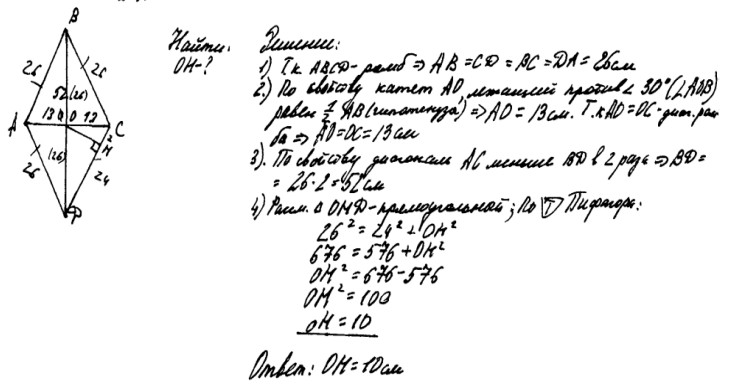 B
26
26
52(26)
A 13 O 13 C
2
H
26
(26)
24
D
Найти:
OH-?
Решение:
1) Т.к ABCD-ромб ⇒ AB=CD=BC=DA=26см
2) По свойству катет AO, лежащий против ∠ 30° (∠AOB)
равен 1/2 AB (гипотенуза) ⇒ AO=13см. Т.к AO=OC-диаг.ром
ба ⇒ AO=OC=13см
3). По свойству диагонали AC меньше BD в 2 раза ⇒ BD=
=26·2=52см
4) Рассм. Δ OHD-прямоугольный; По Т Пифагора:
26²=24²+OH²
676=576+OH²
OH²=676-576
OH²=100
OH=10
Ответ: OH=10см